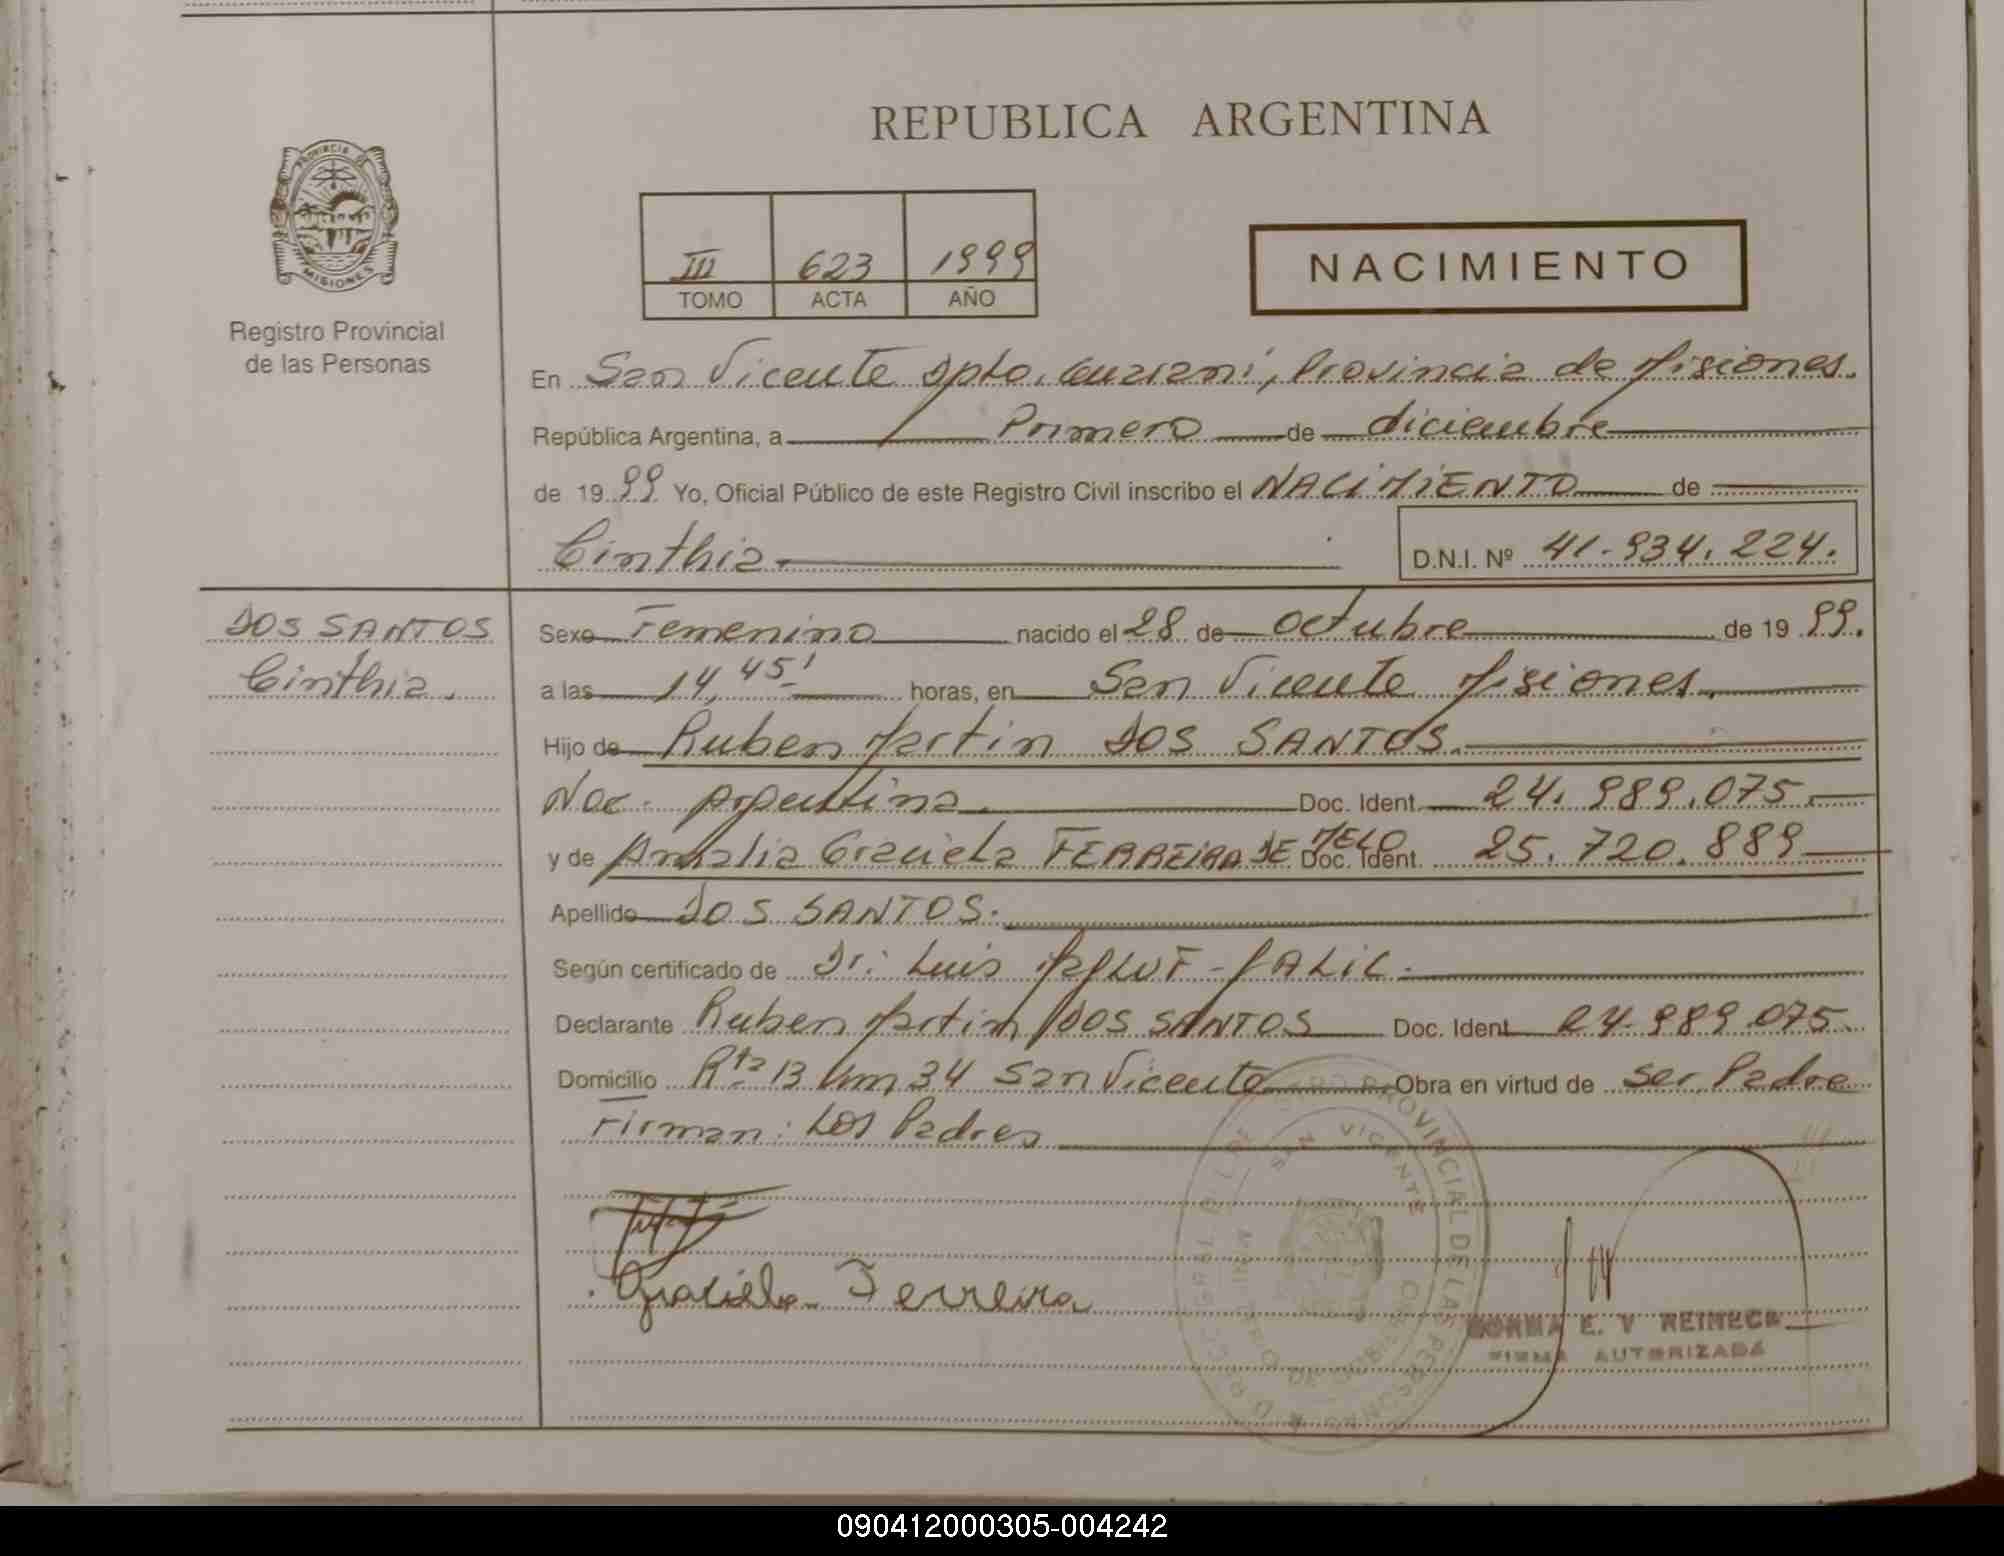 REPUBLICA ARGENTINA
PROVINCIA DE
MISIONES
Registro Provincial
de las Personas
III 623 1999
TOMO ACTA AÑO
NACIMIENTO
En San Vicente Dpto. Guaraní, Provincia de Misiones.
República Argentina, a Primero de diciembre
de 19 99 Yo, Oficial Público de este Registro Civil inscribo el NACIMIENTO de
Cinthia
D.N.I. Nº 41.934.224.
DOS SANTOS
Cinthia.
Sexo Femenino nacido el 28 de octubre de 19 99.
a las 14,45' horas, en San Vicente Misiones.
Hijo de Ruben Martin DOS SANTOS.
Nac. Argentina. Doc. Ident. 24.989.075.
y de Amalia Graciela FERREIRA DE MELO Doc. Ident. 25.720.889
Apellido DOS SANTOS.
Según certificado de Dr: Luis
Declarante Ruben Martin DOS SANTOS Doc. Ident. 24.989.075
Domicilio Rta 13 Km 34 San Vicente Obra en virtud de ser Padre
Firman: Los Padres
Graciela Ferreira
SAN VICENTE
PROVINCIAL DE LAS PERSONAS
NORMA E. V. REINECK
FIRMA AUTORIZADA
090412000305-004242